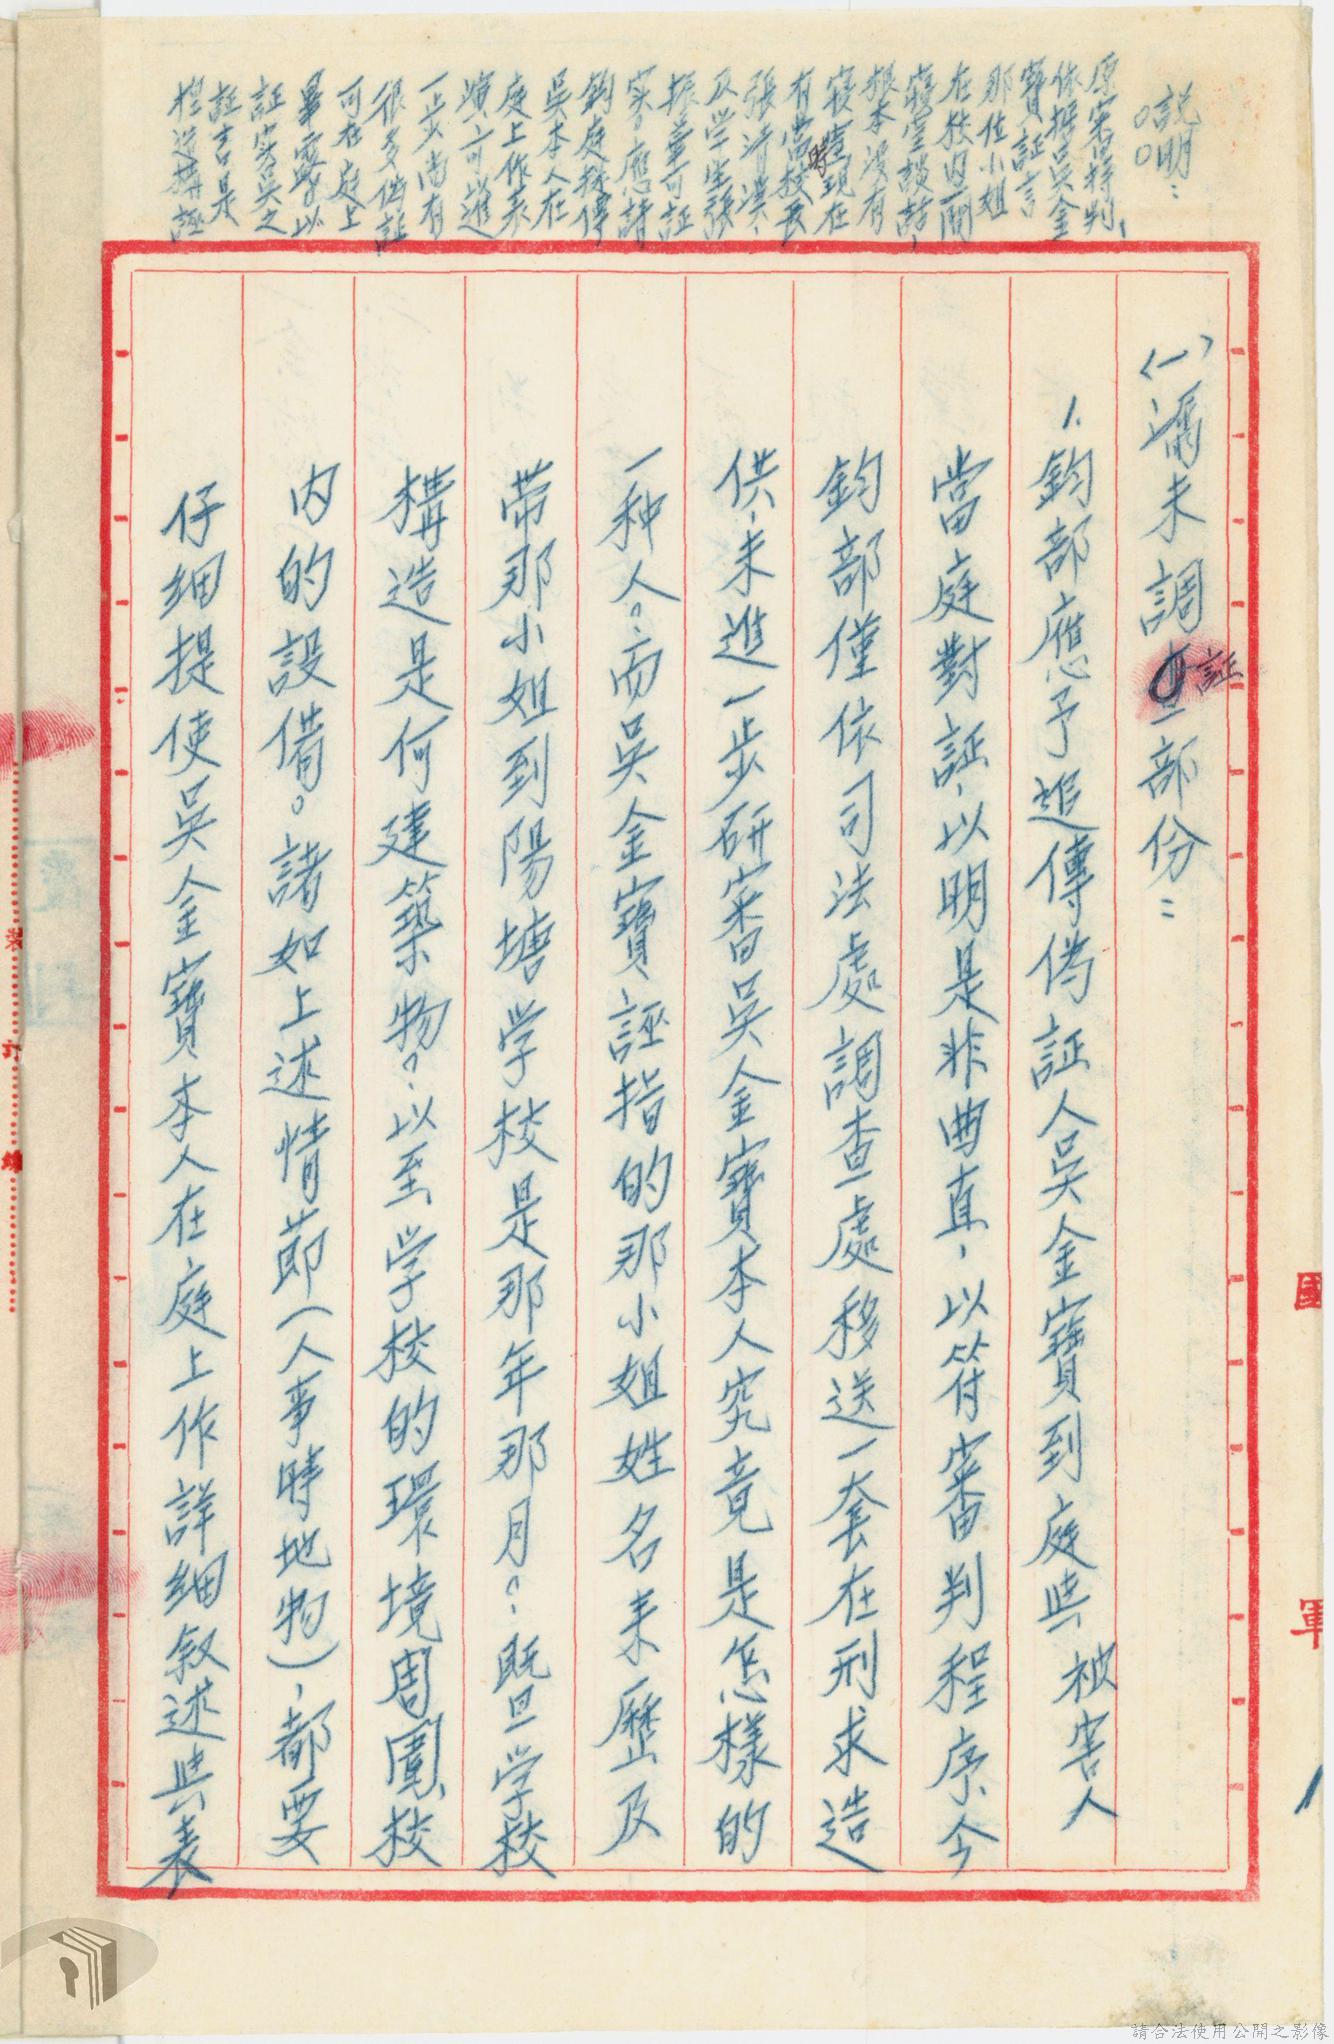 說明:
原案揭判、
依據吳金
寶証言
那位小姐
在校內兩
寢室談話,
根本沒有
寢室,現在
時
有當校長
張沛漢、
及学生張
振華可証
実。應請
鈞庭採傳
吳本人在
庭上作表
演,可進
一步尚有
很多偽証
可在庭上
畢露以
証実吳之
証言是
捏造搆誣
〈一〉漏未調証部份:
1.鈞部應予追傳偽証人吳金寶到庭與被害人
當庭對証,以明是非曲直,以符審判程序今
鈞部僅依司法處調查處移送一套在刑求造
供,未進一步研審吳金寶本人究竟是怎樣的
一种人?而吳金寶誣指的那小姐姓名来歷及
帶那小姐到陽塘学校是那年那月?暨学校
構造是何建築物?以至学校的環境周圍校
內的設備。諸如上述情節(人事時地物),都要
仔細提使吳金寶本人在庭上作詳細叙述與表
裝
訂
線
國
軍
請合法使用公開之影像